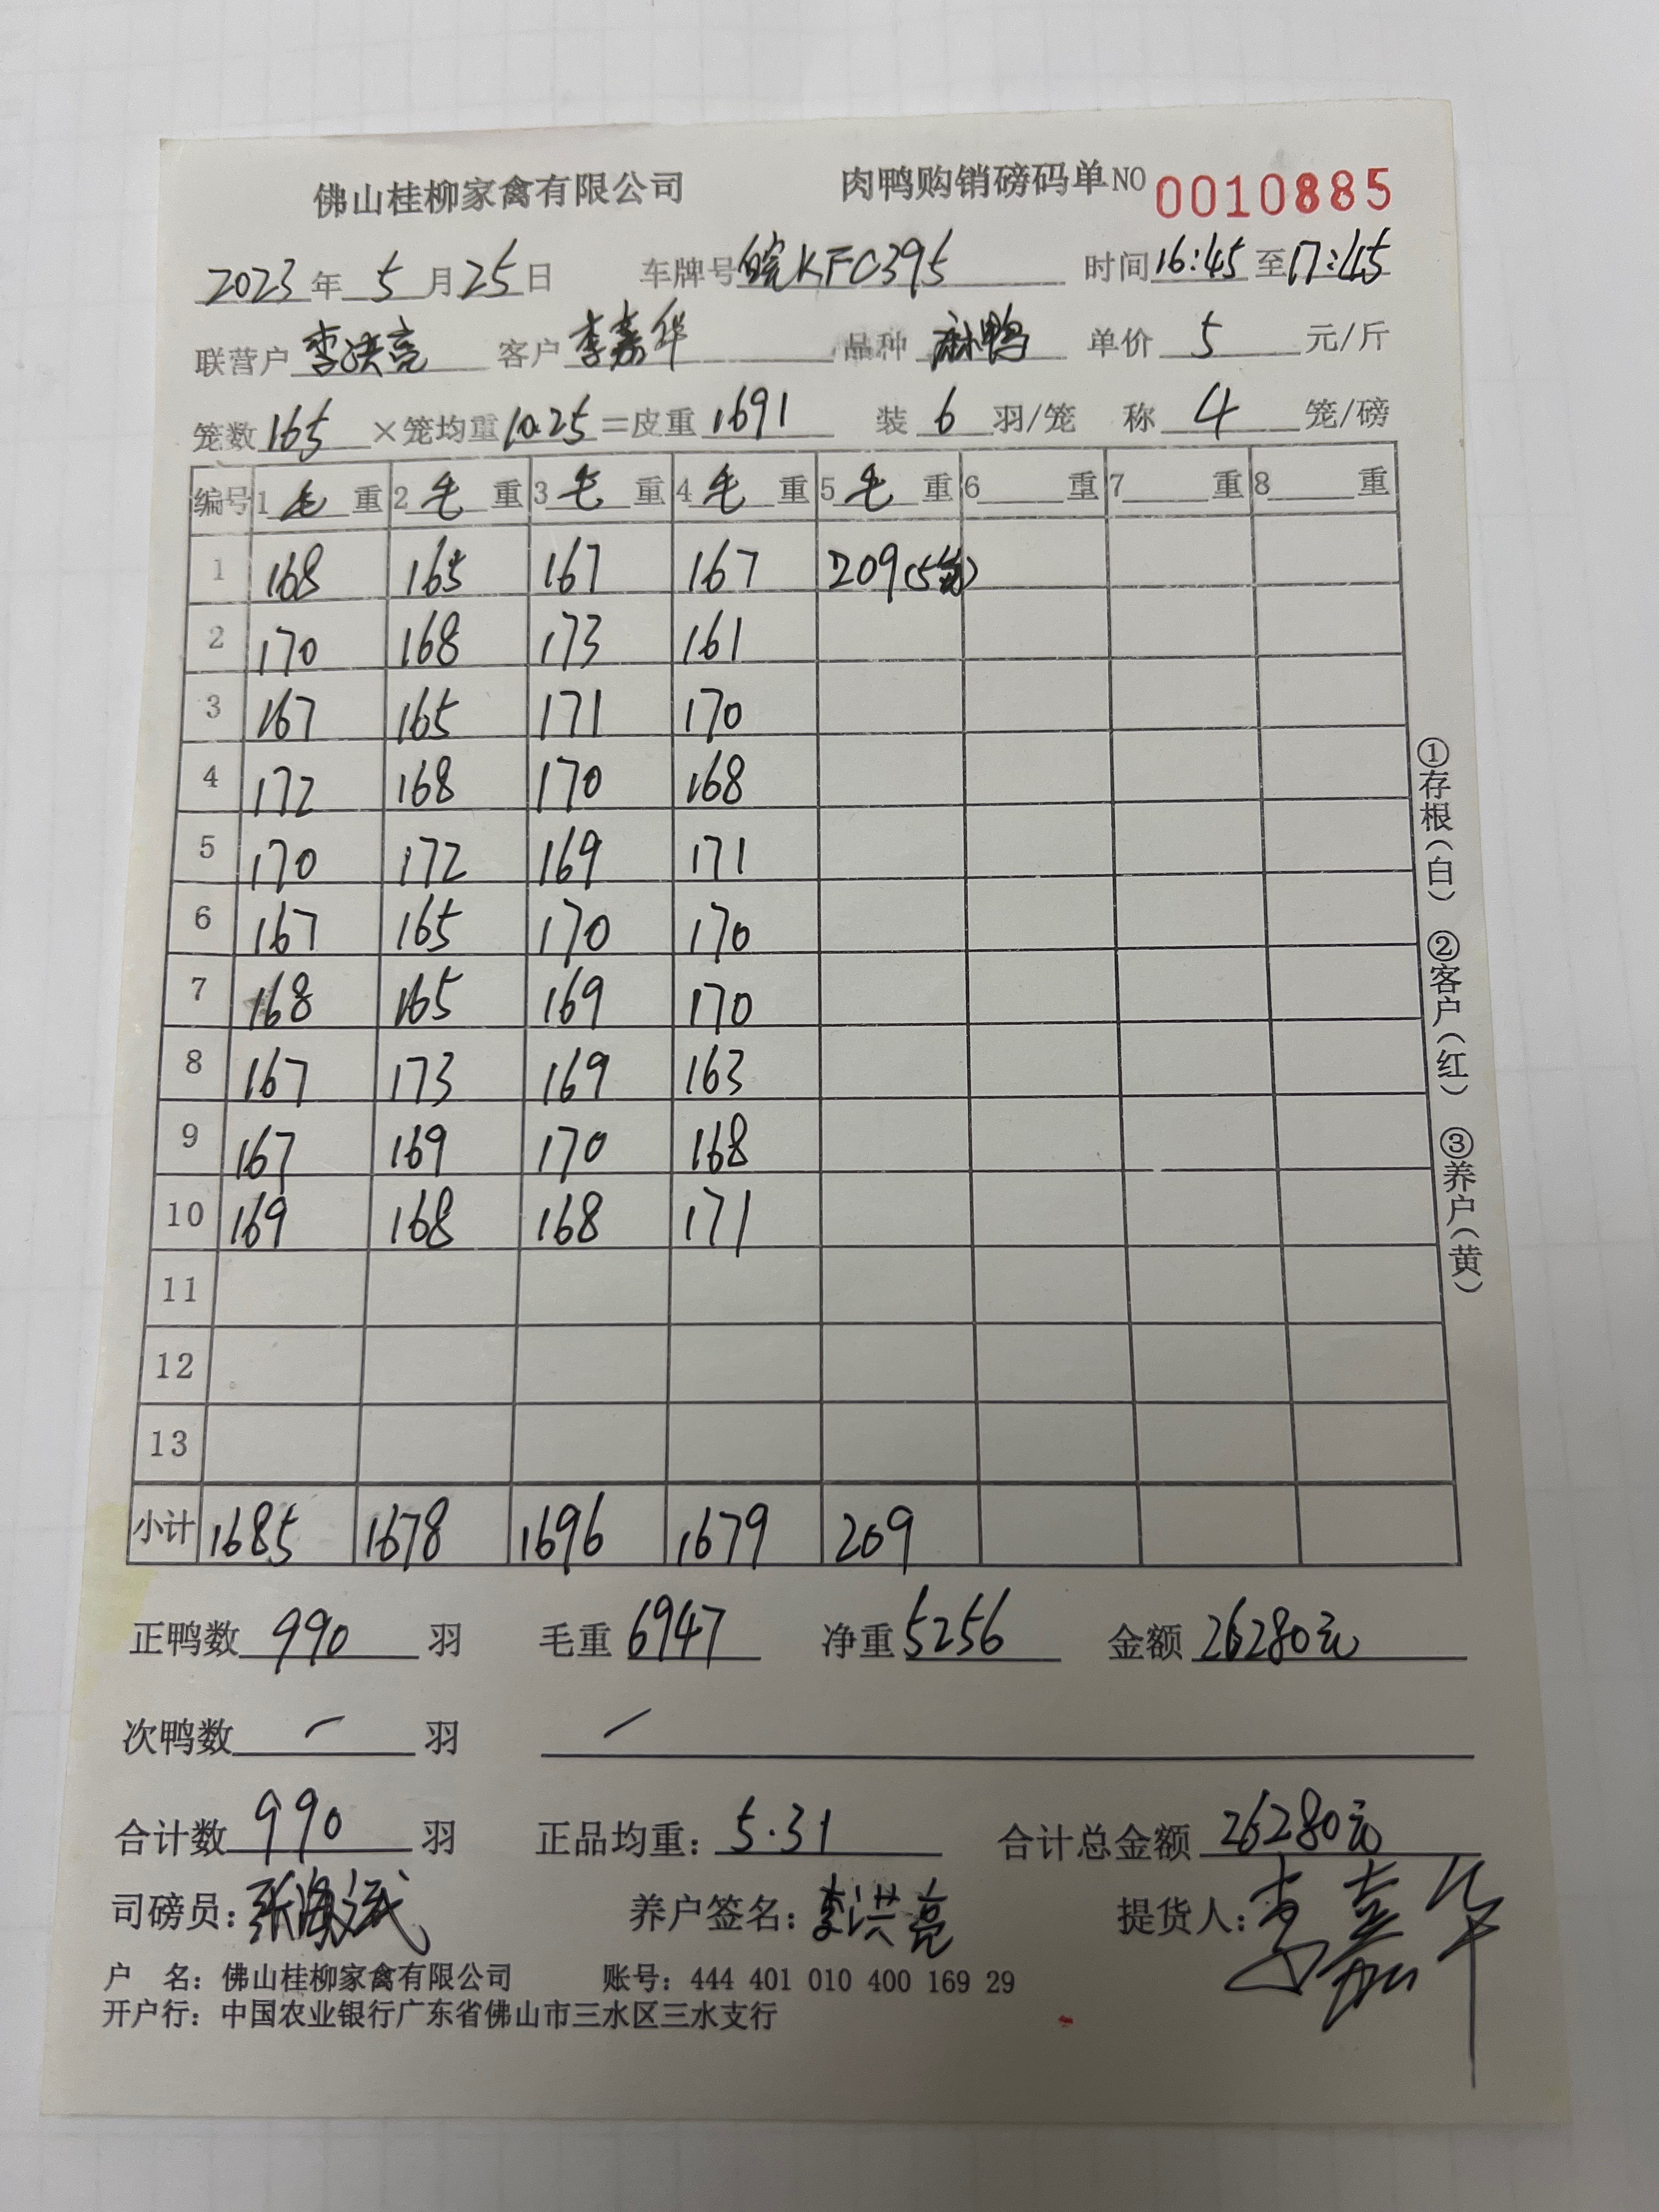 佛山桂柳家禽有限公司 肉鸭购销磅码单NO 0010885
2023年5月25日 车牌号皖KFC395 时间16:45至17:45
联营户李洪亮 客户李嘉华 品种麻鸭 单价5元/斤
笼数165×笼均重10.25=皮重1691 装6羽/笼 称4笼/磅
编号 1毛重 2毛重 3毛重 4毛重 5毛重 6重 7重 8重
1 168 165 167 167 209(5笼)
2 170 168 173 161
3 167 165 171 170
4 172 168 170 168
5 170 172 169 171
6 167 165 170 170
7 168 165 169 170
8 167 173 169 163
9 167 169 170 168
10 169 168 168 171
11
12
13
小计 1685 1678 1696 1679 209
正鸭数990羽 毛重6947 净重5256 金额26280元
次鸭数—羽 —
合计数990羽 正品均重：5.31 合计总金额26280元
司磅员：张海 养户签名：李洪亮 提货人：李嘉华
户 名：佛山桂柳家禽有限公司 账号：444 401 010 400 169 29
开户行：中国农业银行广东省佛山市三水区三水支行
①存根（白） ②客户（红） ③养户（黄）